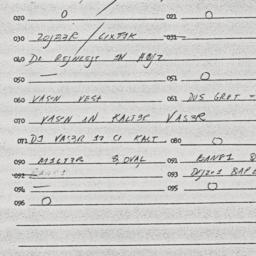 020 0 021 0
030 ZOJZER / LIXTIK 031 —
040 DI REJNEST IN HOJZ
050 — 051 0
060 VASN VEST 061 DOS GRET
070 VASN IN KALTER VASER
071 DI VASER IZ CI KALT 080 0
090 MILTER & OVAL 091
092 093
094 — 095 0
096 0